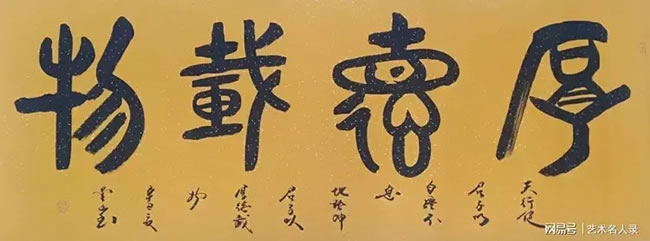 厚德載物
天行健
君子以
自强不
息
地势坤
君子以
厚德載
物
网易号 | 艺术名人录